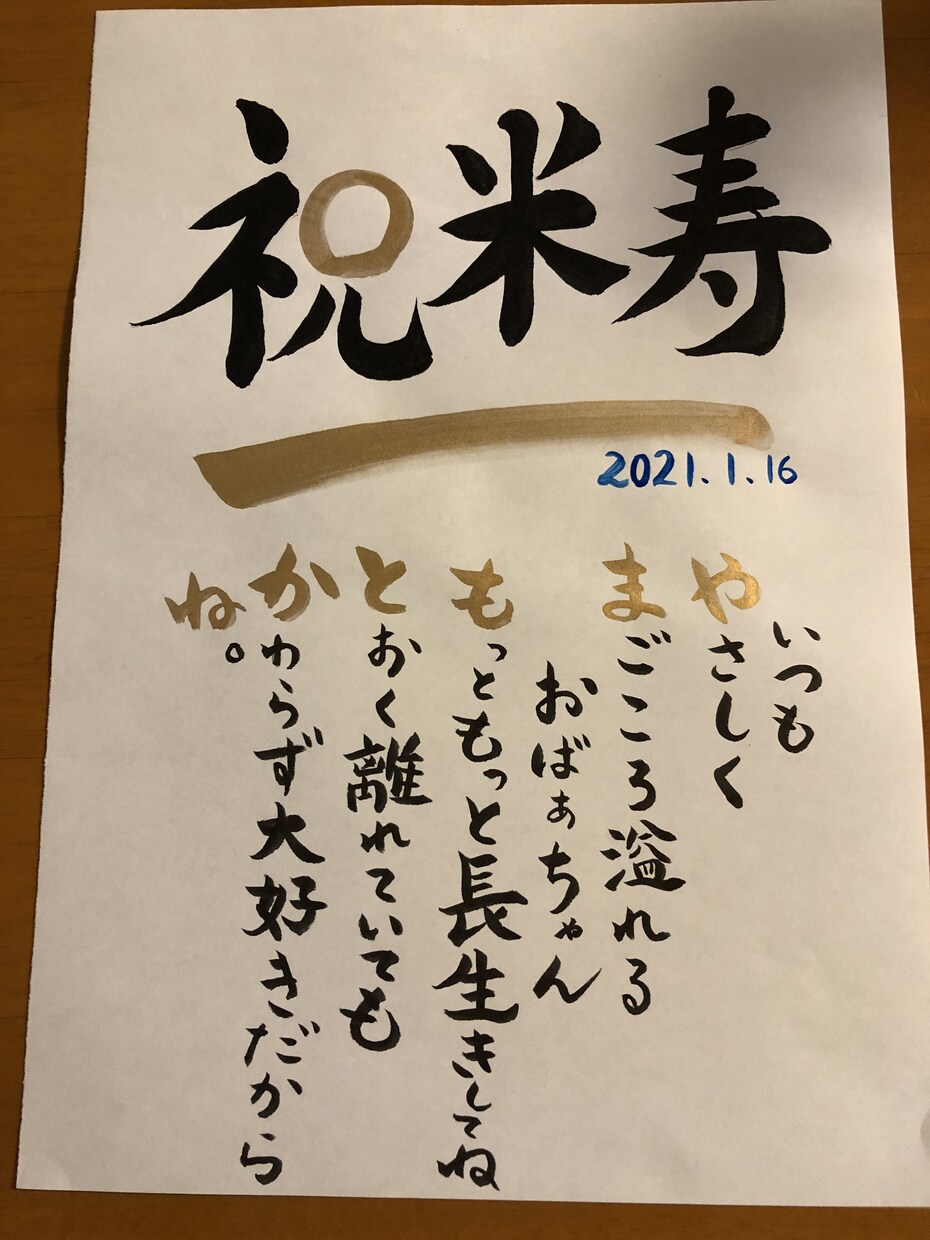 祝米寿
2021.1.16
いつも
やさしく
まごころ溢れる
おばぁちゃん
もっともっと長生きしてね
とおく離れていても
かわらず大好きだから
ね。